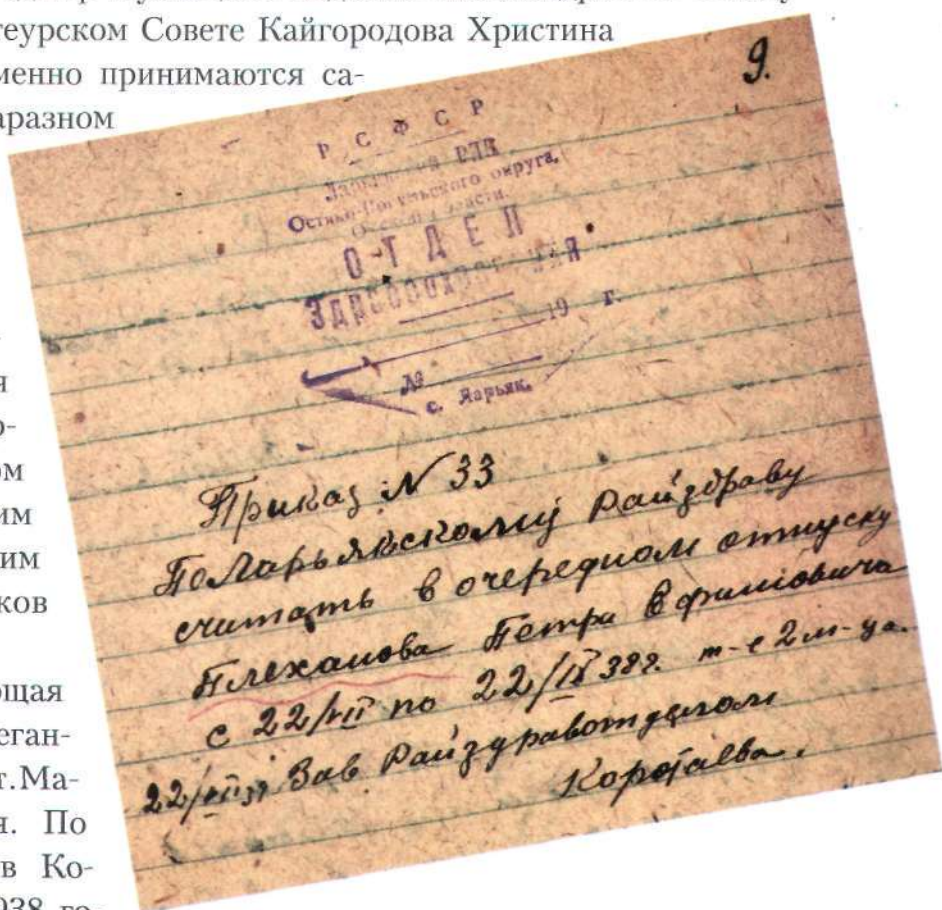 теурском Совете Кайгородова Христина
менно принимаются са-
аразном
я
о-
ом
им
им
ков
ющая
еган-
т.Ма-
я. По
в Ко-
938 го-
9.
Р С Ф С Р
РИК
Остяко-Вогульского округа,
области.
ОТДЕЛ
ЗДРАВООХРАНЕНИЯ
19 г.
№
с. Ларьяк.
Приказ № 33
По Ларьякскому Райздраву
считать в очередном отпуску
Плеханова Петра Ефимовича
с 22/VII по 22/IX 38г. т-е 2 м-ца.
22/VII 38 Зав Райздравотделом
Коротаева.